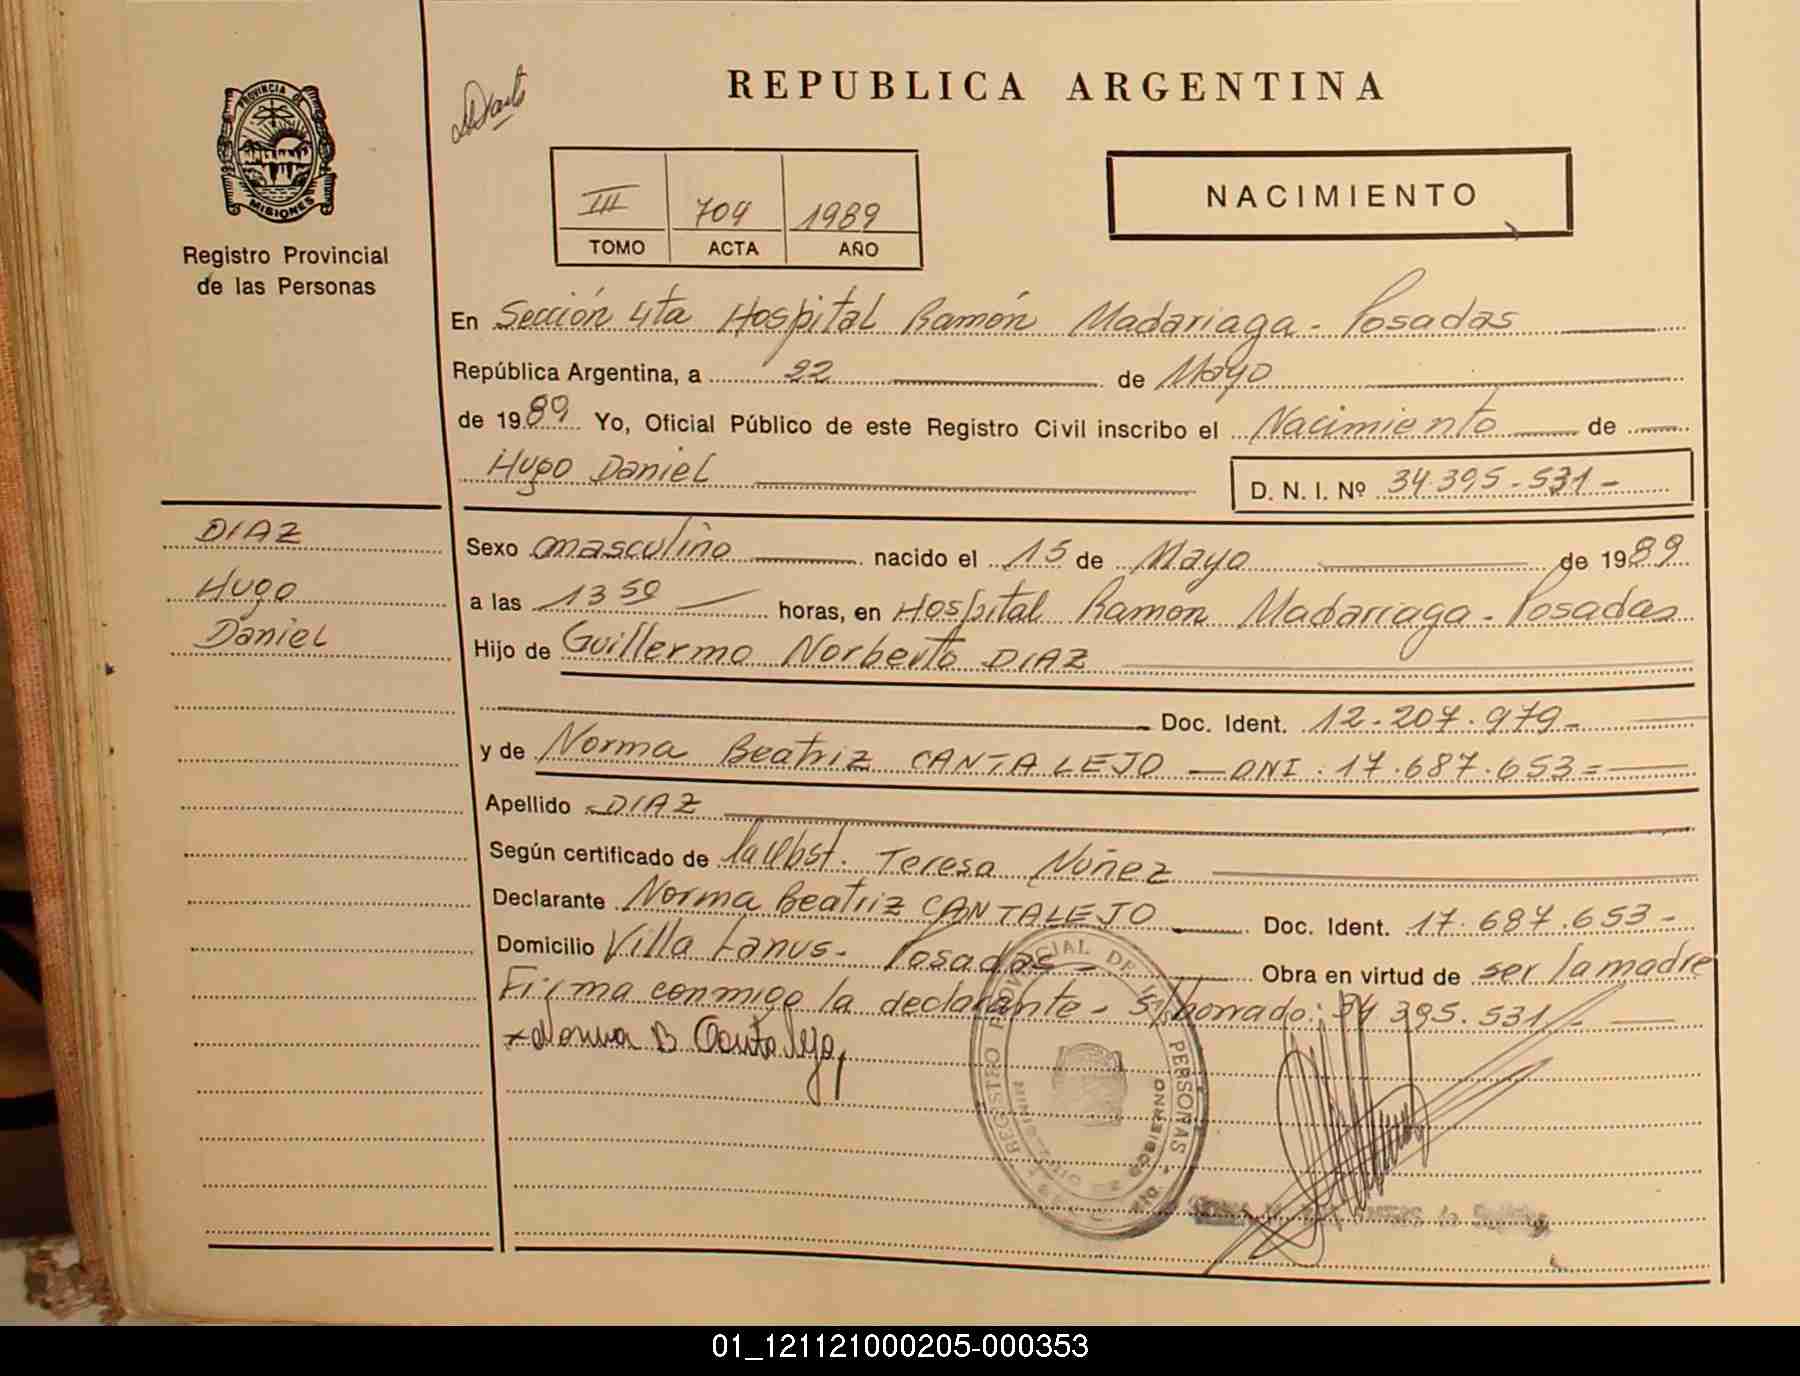 REPUBLICA ARGENTINA
PROVINCIA DE
MISIONES
Registro Provincial
de las Personas
III 709 1989
TOMO ACTA AÑO
NACIMIENTO
En Sección 4ta Hospital Ramón Madariaga - Posadas
República Argentina, a 22 de Mayo
de 1989 Yo, Oficial Público de este Registro Civil inscribo el Nacimiento de
Hugo Daniel D. N. I. Nº 34.395.531-
DIAZ
Hugo
Daniel
Sexo masculino nacido el 15 de Mayo de 1989
a las 13 50 horas, en Hospital Ramón Madariaga - Posadas
Hijo de Guillermo Norberto DIAZ
Doc. Ident. 12.207.979-
y de Norma Beatriz CANTALEJO - DNI: 17.687.653=
Apellido DIAZ
Según certificado de la Obst. Teresa Núñez
Declarante Norma Beatriz CANTALEJO Doc. Ident. 17.687.653-
Domicilio Villa Lanus - Posadas - Obra en virtud de ser la madre
Firma conmigo la declarante - s/borrado: 34 395.531-
Norma B Cantalejo
REGISTRO PROVINCIAL DE LAS PERSONAS
MINISTERIO DE GOBIERNO
01_121121000205-000353